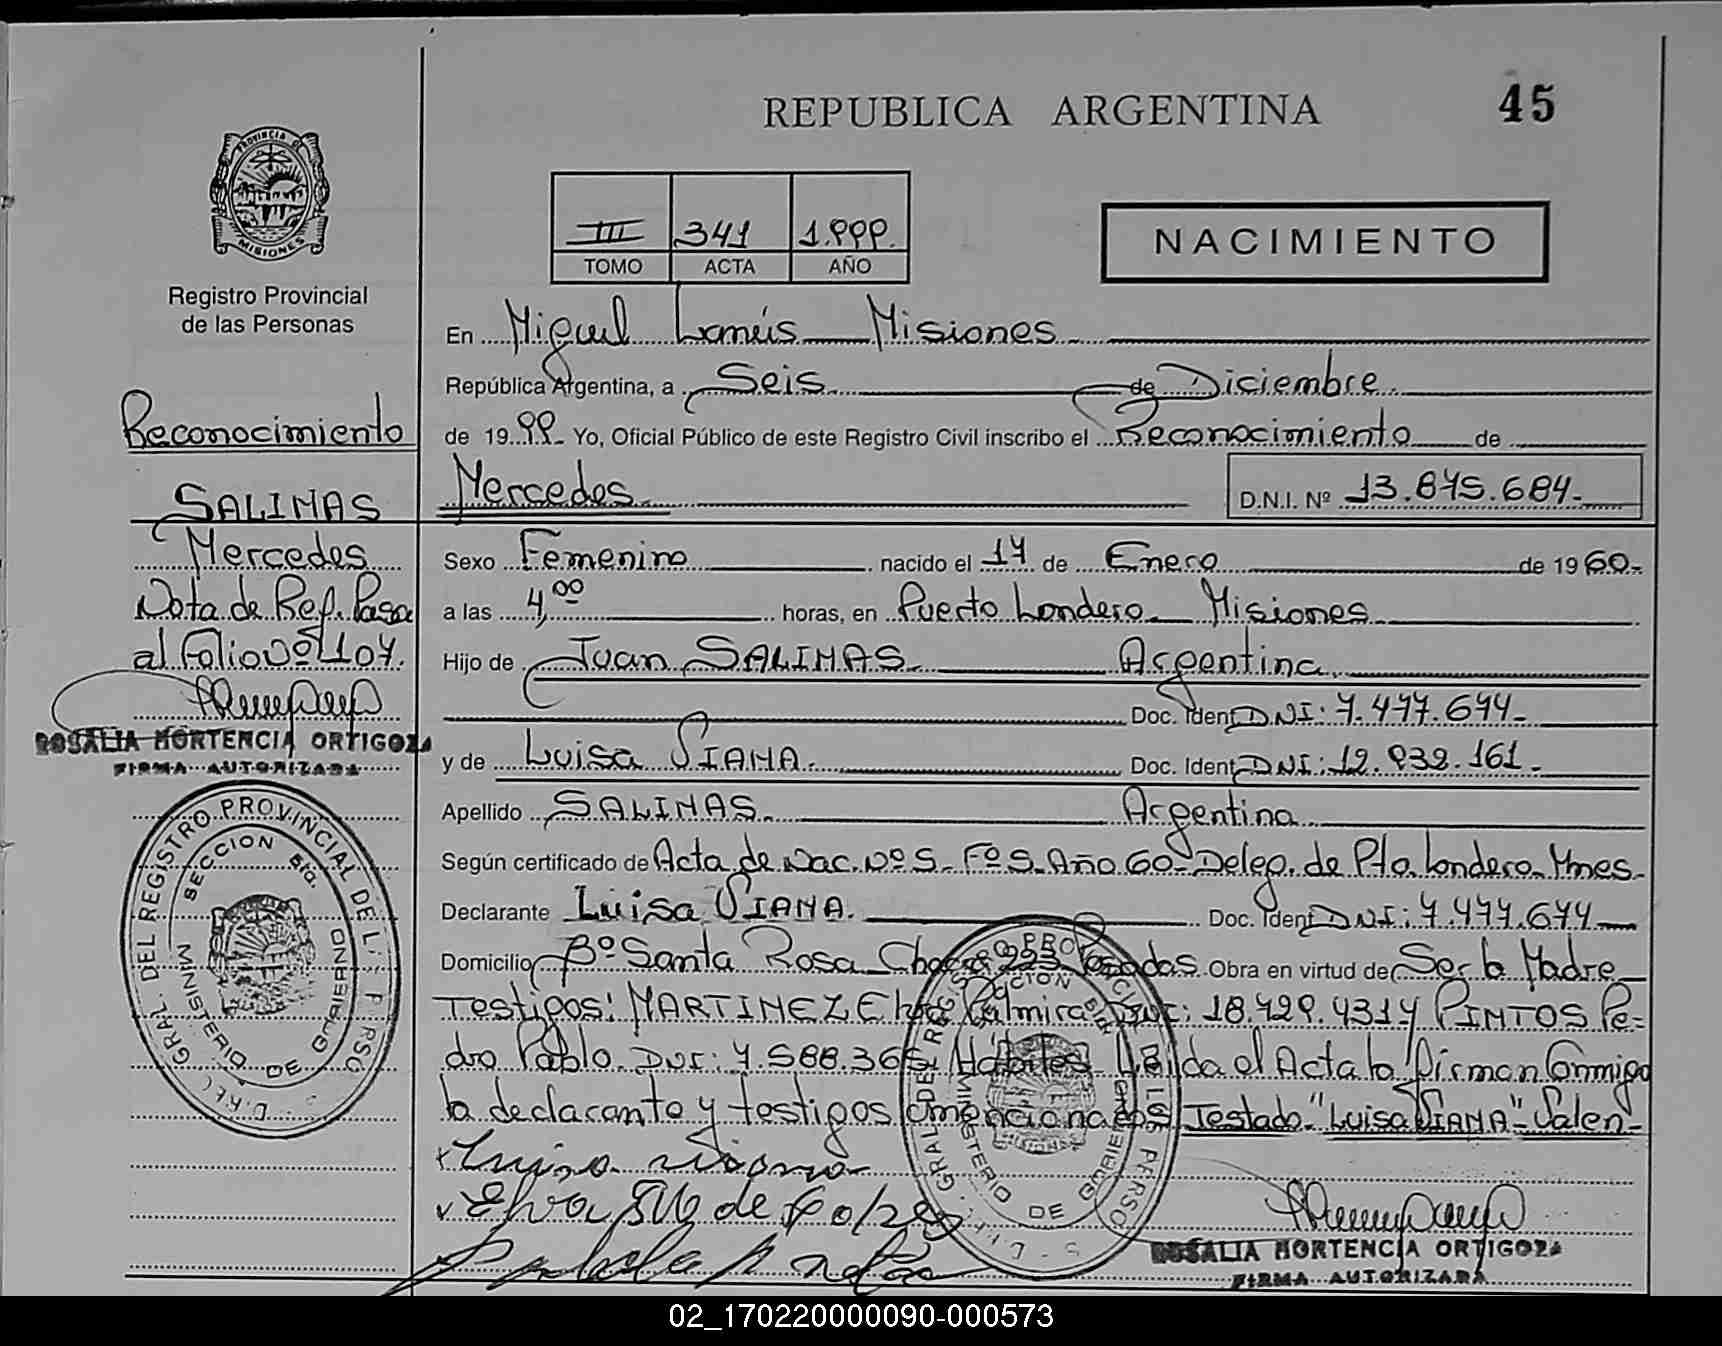 REPUBLICA ARGENTINA
45
PROVINCIA DE
MISIONES
Registro Provincial
de las Personas
III 341 1.999.
TOMO ACTA AÑO
NACIMIENTO
En Miguel Lanús Misiones
República Argentina, a Seis de Diciembre
de 1999 Yo, Oficial Público de este Registro Civil inscribo el Reconocimiento de
Mercedes
D.N.I. Nº 13.875.684-
Sexo Femenino nacido el 17 de Enero de 1960-
a las 4,00 horas, en Puerto Londero Misiones
Hijo de Juan SALINAS Argentina
Doc. Ident DNI: 7.477.674-
y de Luisa VIANA. Doc. Ident DNI: 12.932.161-
Apellido SALINAS Argentina
Según certificado de Acta de Nac. Nº 5- Fº 5- Año 60- Deleg. de Pto. Londero- Mnes-
Declarante Luisa VIANA. Doc. Ident DNI: 7.477.674
Domicilio Bº Santa Rosa Chacra 253 Posadas Obra en virtud de Ser la Madre
Testigos: MARTINEZ Elva DNI: 18.729.431 y PINTOS Pe-
dro Pablo DNI: 7.588.365 Hábiles Leída el Acta la firman Conmigo
la declarante y testigos mencionados Testado "Luisa VIANA" Valen-
Luisa Viana
Elva de
ROSALIA HORTENCIA ORTIGOZA
FIRMA AUTORIZADA
Reconocimiento
SALINAS
Mercedes
Nota de Ref. Pasa
al Folio Nº 107.
ROSALIA HORTENCIA ORTIGOZA
FIRMA AUTORIZADA
GRAL. DEL REGISTRO PROVINCIAL DE L
SECCION 8ra.
MINISTERIO DE GOBIERNO
MINISTERIO DE GOBIERNO
02_170220000090-000573